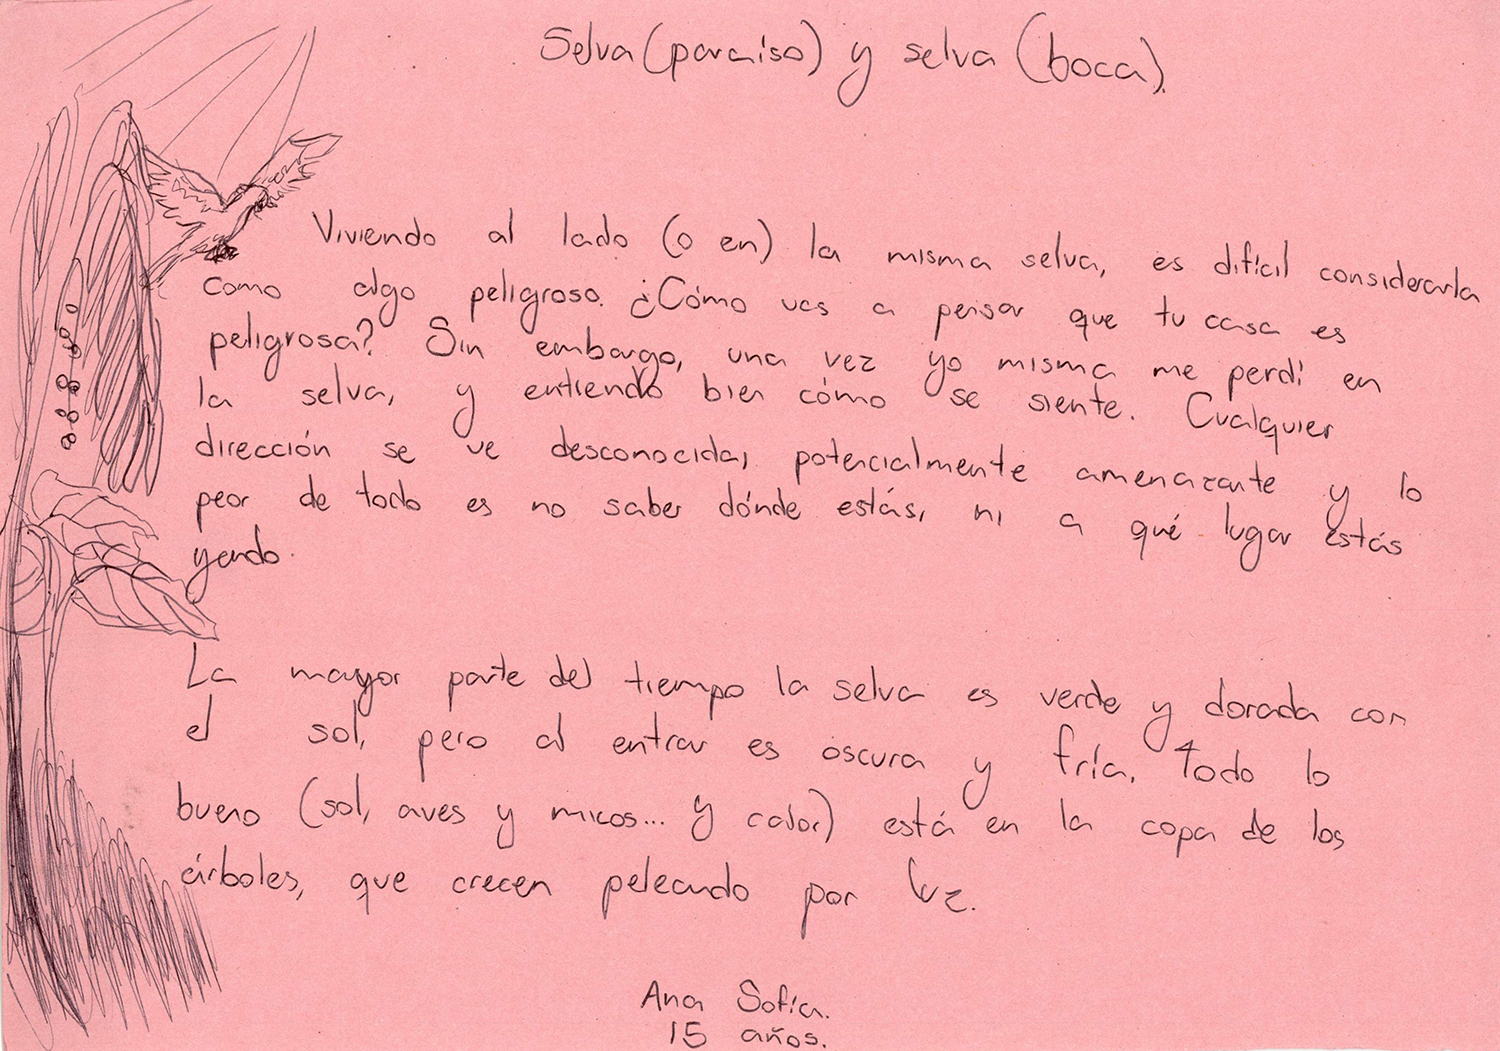 Selva (paraíso) y selva (boca).
Viviendo al lado (o en) la misma selva, es difícil considerarla
como algo peligroso. ¿Cómo vas a pensar que tu casa es
peligrosa? Sin embargo, una vez yo misma me perdí en
la selva, y entiendo bien cómo se siente. Cualquier
dirección se ve desconocida, potencialmente amenazante y lo
peor de todo es no saber dónde estás, ni a qué lugar estás
yendo.
La mayor parte del tiempo la selva es verde y dorada con
el sol, pero al entrar es oscura y fría. Todo lo
bueno (sol, aves y micos... y calor) está en la copa de los
árboles, que crecen peleando por luz.
Ana Sofía.
15 años.